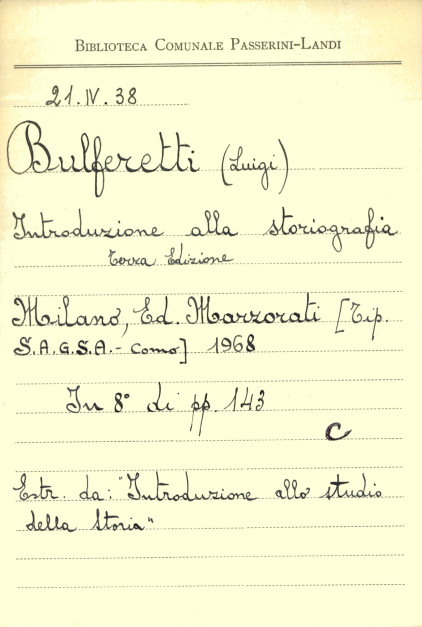 BIBLIOTECA COMUNALE PASSERINI-LANDI
21.IV.38
Bulferetti (Luigi)
Introduzione alla storiografia
terza Edizione
Milano, Ed. Marzorati [Tip.
S.A.G.S.A.- Como] 1968
In 8° di pp. 143
C
Estr. da: "Introduzione allo studio
della Storia"